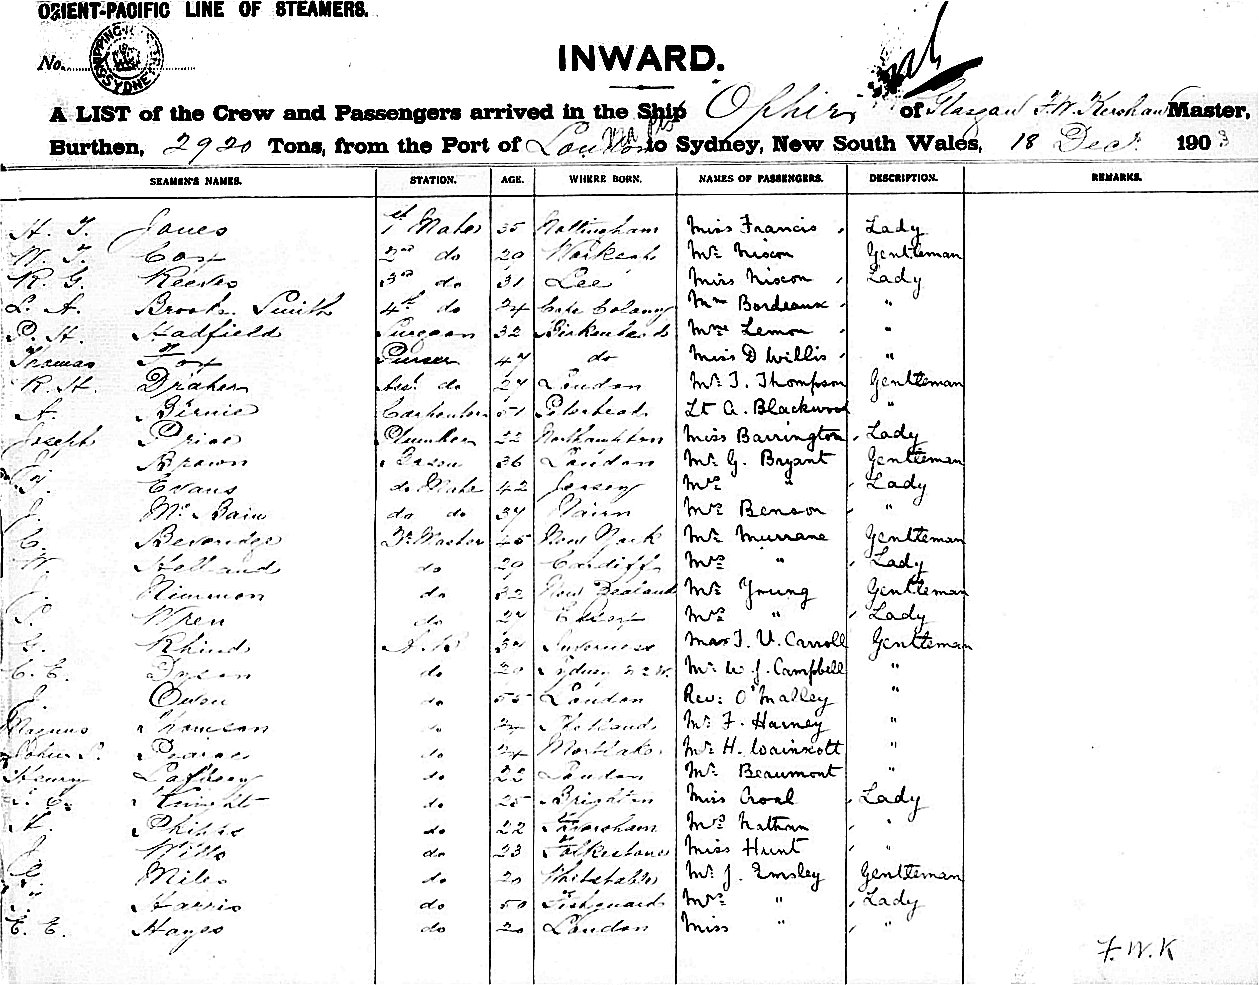 ORIENT-PACIFIC LINE OF STEAMERS.
No.
SHIPPING MASTER SYDNEY
INWARD.
A LIST of the Crew and Passengers arrived in the Ship Ophir of Glasgow F.W. Kershaw Master,
Burthen, 2920 Tons, from the Port of London to Sydney, New South Wales, 18 Decr. 1903
SEAMEN'S NAMES. STATION. AGE. WHERE BORN. NAMES OF PASSENGERS. DESCRIPTION. REMARKS.
H. T. Jones 1st Mate 35 Nottingham Miss Francis Lady
W. T. Cox 2nd do 20 Mr Nixon Gentleman
R. G. Reeves 3rd do 31 Lee Miss Nixon Lady
L. A. Brook Smith 4th do 24 Cape Colony Bordeaux "
P. H. Hadfield Surgeon 32 Birkenhead Mme Lemon "
Thomas Fox Purser 47 do Miss D Willis "
R. H. Draher Asst do 27 London Mr T. Thompson Gentleman
A. Birnie Carpenter 51 Peterhead Lt A. Blackwood "
Joseph Price Plumber 22 Northampton Miss Barrington Lady
Brown Bosun 36 London Mr G. Bryant Gentleman
Evans do Mate 42 Jersey Mrs " Lady
J. Mc Bain do do 37 Nairn Mrs Benson "
C. Beveridge Qr Master 45 New York Mr Murrane Gentleman
W. Holland do 29 Cardiff Mrs " Lady
J. Nimmon do 32 New Zealand Mr Young Gentleman
Wren do 27 Mrs " Lady
G. Rhind A.B. 34 Inverness Mas T. V. Carroll Gentleman
C. E. Dyson do 30 Sydney N.S.W. Mr W. J. Campbell "
J. Owen do 55 London Rev: O'Malley "
Magnus Thomson do Shetland Mr F. Harney "
John S. Pearce do 24 Mortlake Mr H. Wainscott "
Henry do 22 London Mr Beaumont "
Knight do 25 Brighton Miss Croal Lady
A. Phipps do 22 Faversham Mrs Nathan "
J. Wills do 23 Folkestone Miss Hunt "
Miles do 20 Whitstable Mr J. Emsley Gentleman
Harris do 50 Fishguard Mrs " Lady
E. E. Hayes do 20 London Miss " "
F.W.K